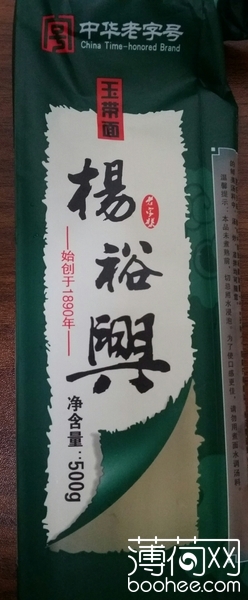 中华老字号
China Time-honored Brand
玉带面
楊裕興
老字號
始创于1890年
净含量:500g
薄荷网
boohee.com